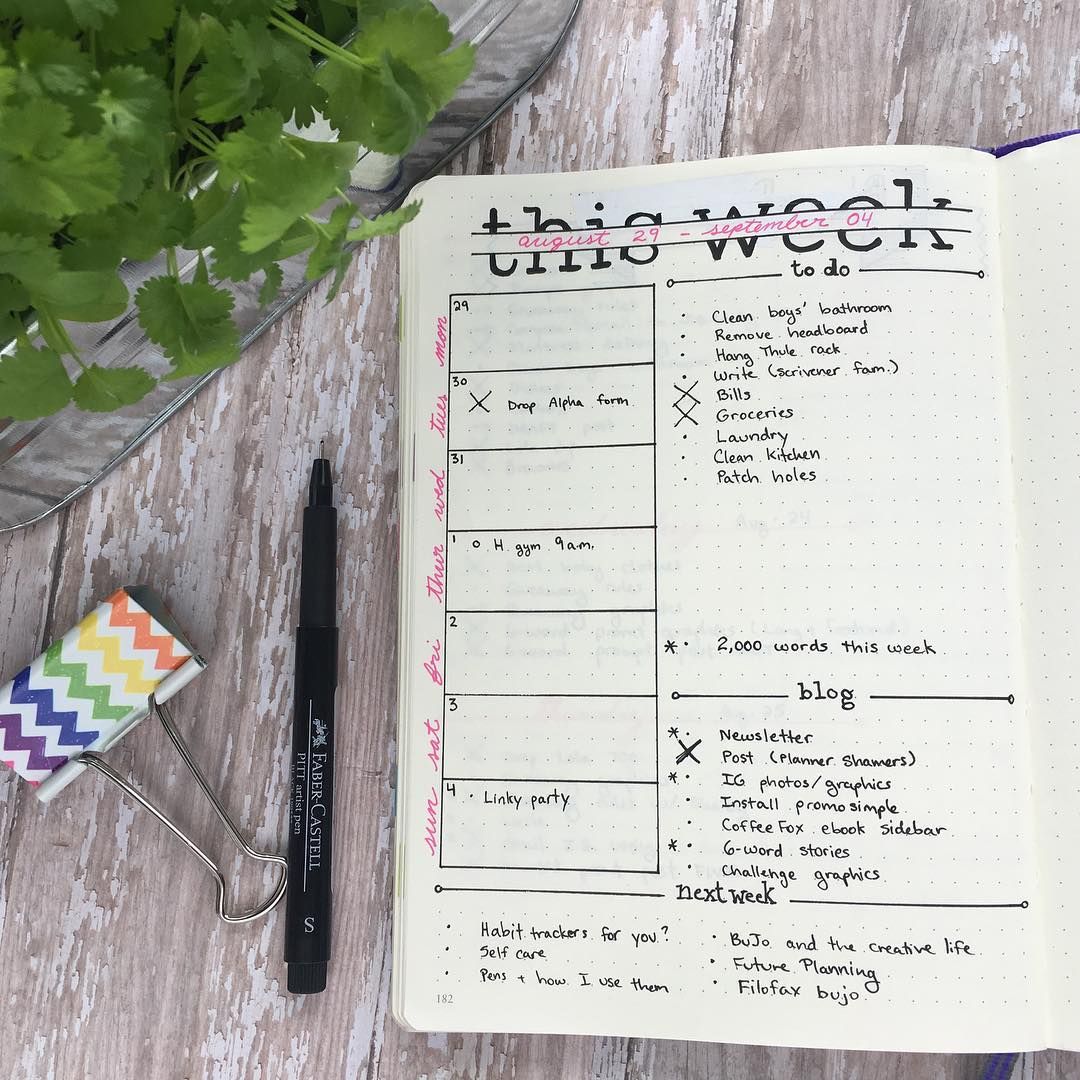 this week
august 29 - september 04
to do
mon
29
tues
30
X Drop Alpha form
wed
31
thur
1
o H. gym 9a.m.
fri
2
sat
3
sun
4
· Linky party
· Clean boys' bathroom
· Remove headboard
· Hang Thule rack
· Write (scrivener fam.)
X Bills
X Groceries
· Laundry
· Clean kitchen
· Patch holes
* · 2,000 words this week
blog
* · Newsletter
X Post (Planner Shamers)
* · IG photos/graphics
· Install promosimple
· CoffeeFox ebook sidebar
* · 6-word stories
· Challenge graphics
next week
· Habit trackers for you?
· Self care
· Pens + how I use them
· BuJo and the creative life
· Future Planning
· Filofax bujo
182
FABER-CASTELL
PITT artist pen
S